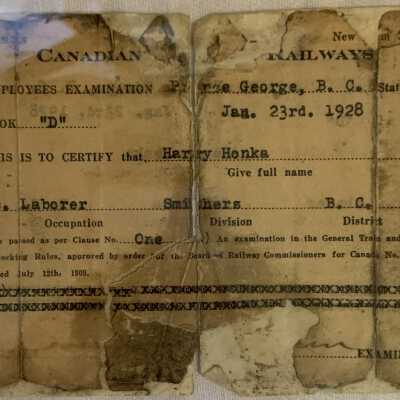 New
CANADIAN RAILWAYS
PLOYEES EXAMINATION Prince George, B. C. Stat
OOK "D" Jan. 23rd. 1928
IS IS TO CERTIFY that Harry Honka
Give full name
. Laborer Smithers B. C.
Occupation Division District
passed as per Clause No. One ) An examination in the General Train and
orking Rules, approved by order of the Board of Railway Commissioners for Canada No.
ed July 12th, 1909.
EXAMIN